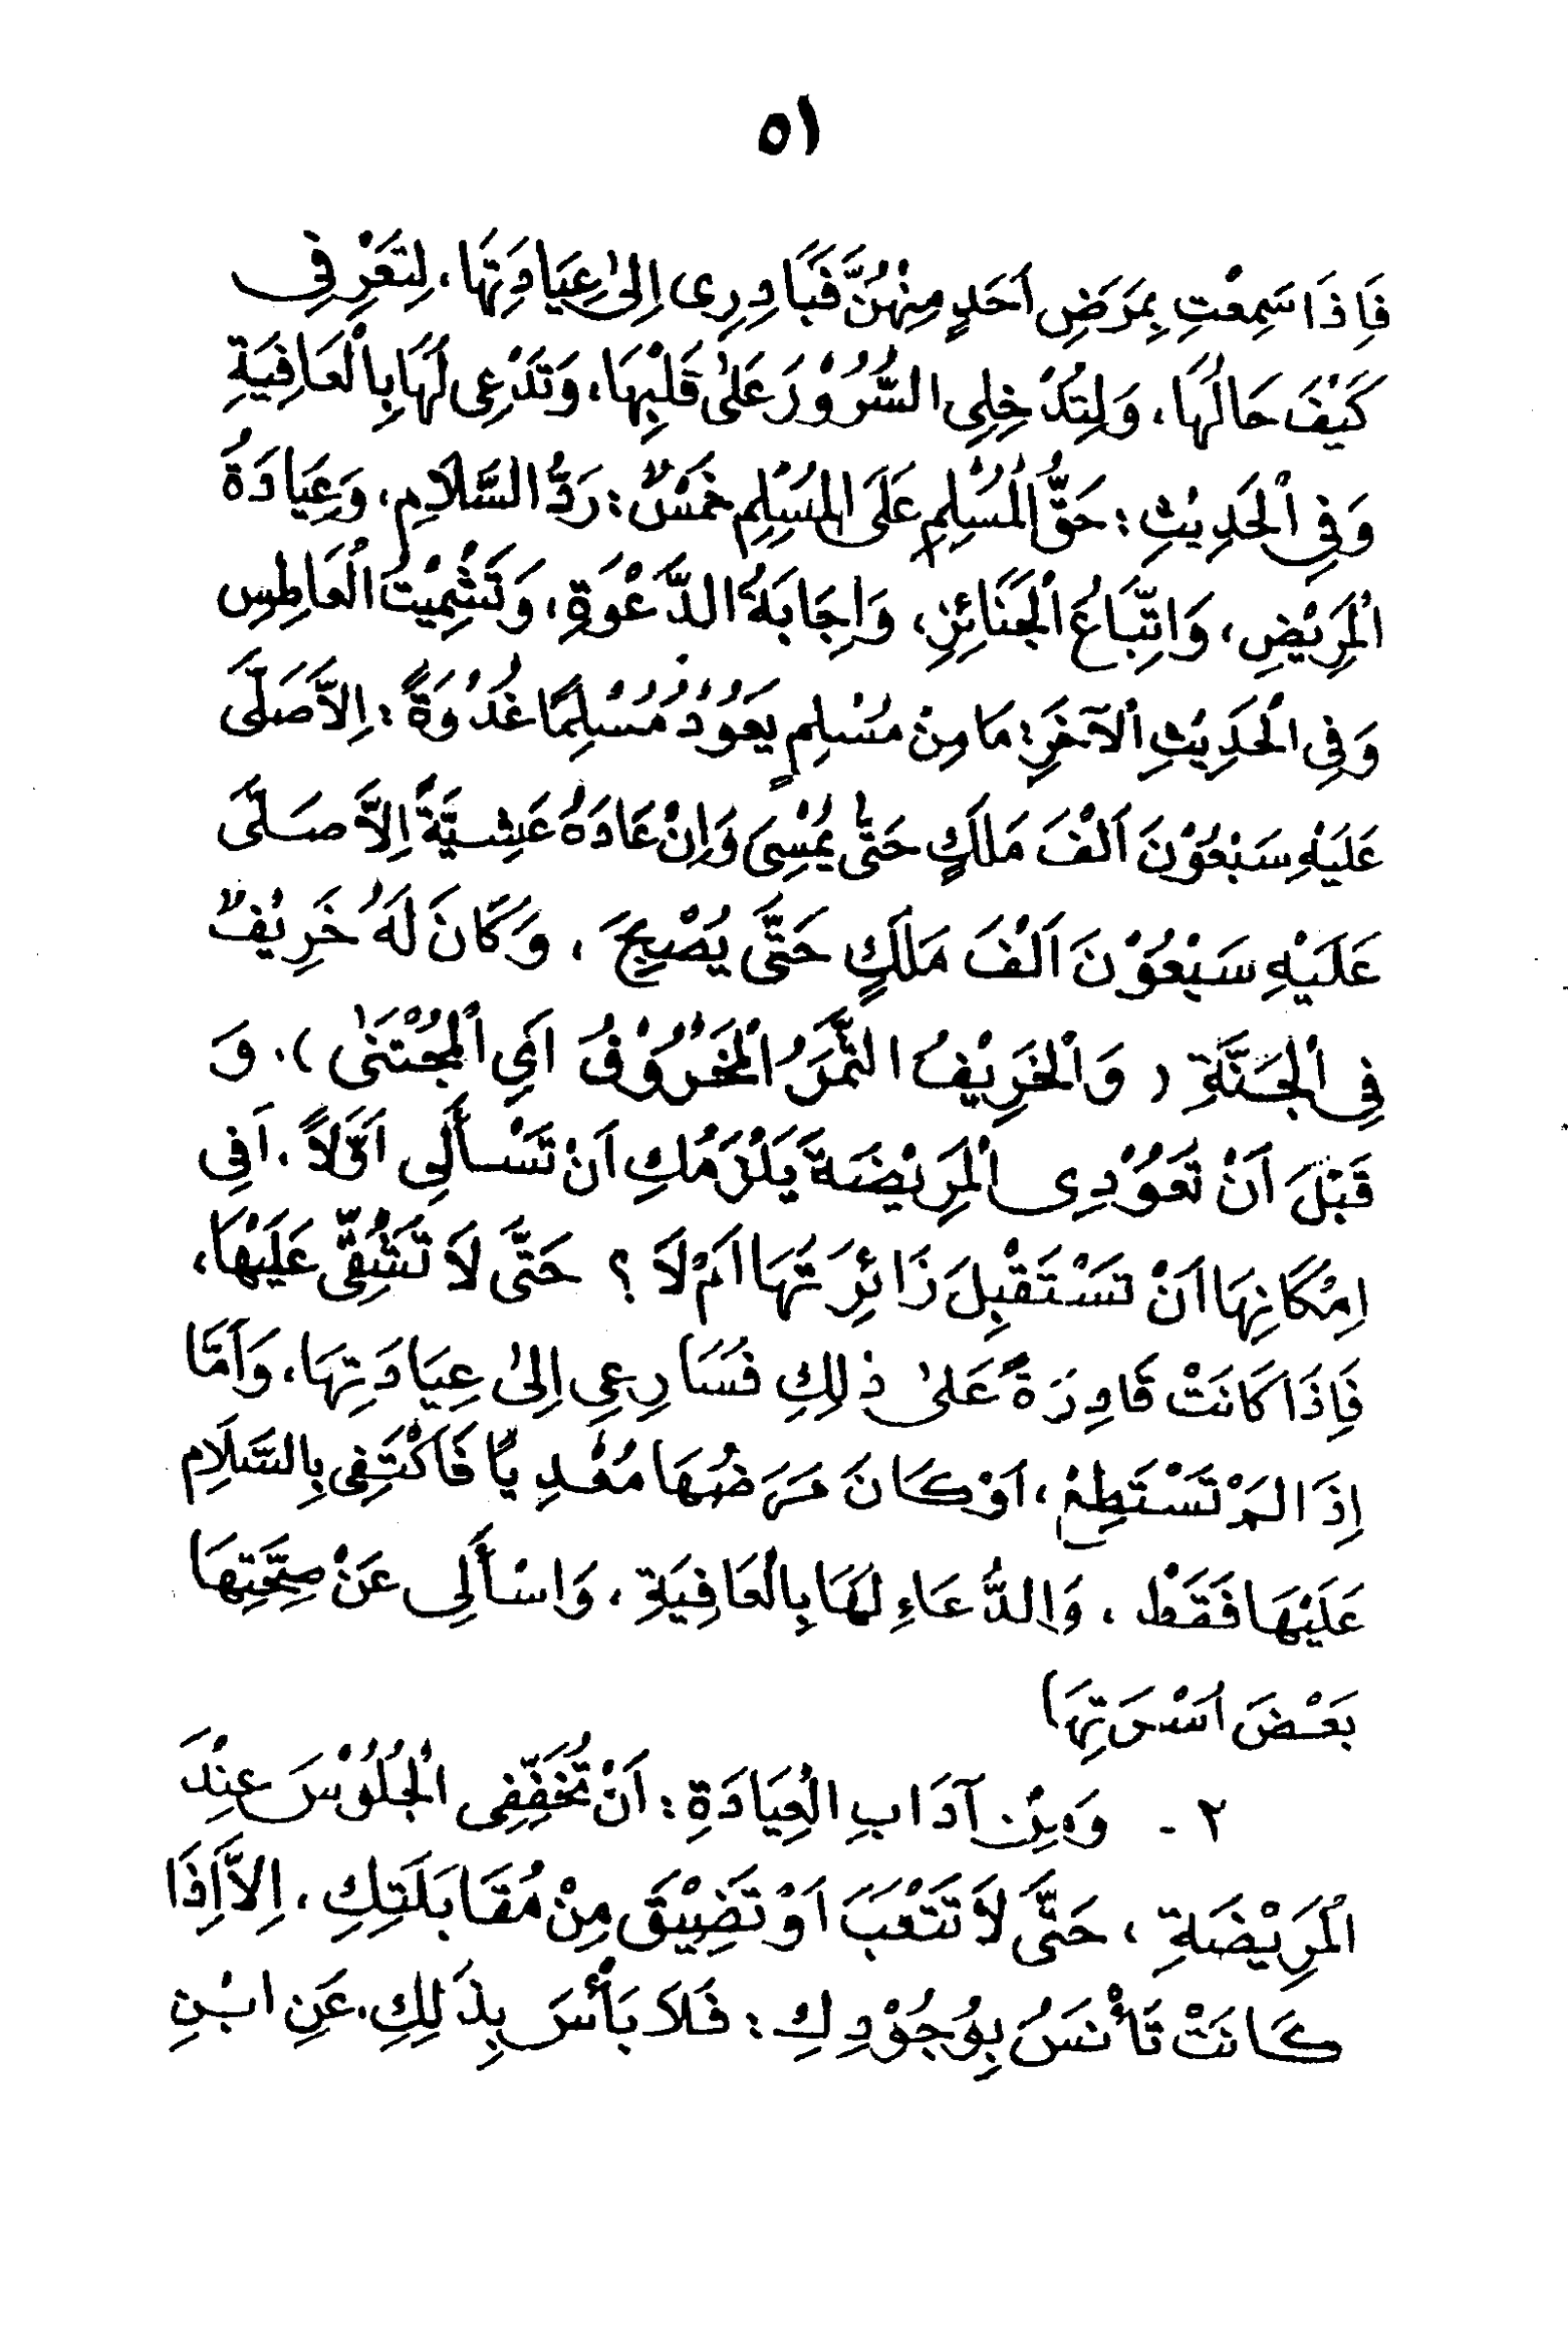 ٥١
فَاِذَا سَمِعْتِ بِمَرَضِ اَحَدٍ مِنْهُنَّ فَبَادِرِى اِلىٰ عِيَادَتِهَا، لِتَعْرِفِى
كَيْفَ حَالُهَا، وَلِتُدْخِلِى السُّرُوْرَ عَلىٰ قَلْبِهَا، وَتَدْعِى لَهَا بِالْعَافِيَةِ
وَفِى الْحَدِيْثِ : حَقُّ الْمُسْلِمِ عَلَى الْمُسْلِمِ خَمْسٌ : رَدُّ السَّلَامِ، وَعِيَادَةُ
الْمَرِيْضِ، وَاتِّبَاعُ الْجَنَائِزِ، وَاِجَابَةُ الدَّعْوَةِ، وَتَشْمِيْتُ الْعَاطِسِ
وَفِى الْحَدِيْثِ الْآخَرِ : مَا مِنْ مُسْلِمٍ يَعُوْدُ مُسْلِمًا غُدْوَةً : اِلاَّ صَلَّى
عَلَيْهِ سَبْعُوْنَ اَلْفَ مَلَكٍ حَتّٰى يُمْسِىَ وَاِنْ عَادَهُ عَشِيَّةً اِلاَّ صَلَّى
عَلَيْهِ سَبْعُوْنَ اَلْفَ مَلَكٍ حَتَّى يُصْبِحَ ، وَكَانَ لَهُ خَرِيْفٌ
فِى الْجَنَّةِ ( وَالْخَرِيْفُ الثَّمَرُ الْمَخْرُوْفُ اَىِ الْمُجْتَنٰى ). وَ
قَبْلَ اَنْ تَعُوْدِى الْمَرِيْضَةَ يَلْزَمُكِ اَنْ تَسْأَلِى اَوَّلاً. اَفِى
اِمْكَانِهَا اَنْ تَسْتَقْبِلَ زَائِرَتَهَا اَمْ لَا ؟ حَتَّى لَا تَشُقِّى عَلَيْهَا،
فَاِذَا كَانَتْ قَادِرَةً عَلىٰ ذٰلِكِ فَسَارِعِى اِلىٰ عِيَادَتِهَا، وَاَمَّا
اِذَا لَمْ تَسْتَطِعْ، اَوْ كَانَ مَرَضُهَا مُعْدِيًّا فَاكْتَفِى بِالسَّلَامِ
عَلَيْهَا فَقَطْ ، وَالدُّعَاءِ لَهَا بِالْعَافِيَةِ ، وَاسْأَلِى عَنْ صِحَّتِهَا
بَعْضَ اُسْرَتِهَا)
٢ - وَمِنْ آدَابِ الْعِيَادَةِ : اَنْ تُخَفِّفِى الْجُلُوْسَ عِنْدَ
الْمَرِيْضَةِ ، حَتَّى لَا تَتْعَبَ اَوْ تَضِيْقَ مِنْ مُقَابَلَتِكِ، اِلاَّ اِذَا
كَانَتْ تَأْنَسُ بِوُجُوْدِكِ : فَلَا بَأْسَ بِذٰلِكِ. عَنِ ابْنِ